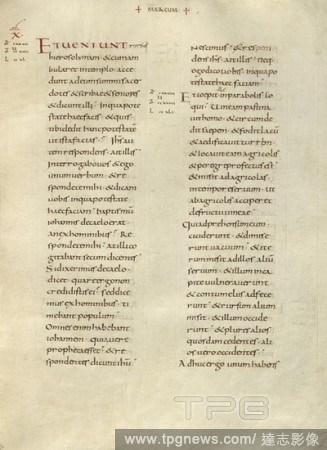 + MARCUM +
X
ET UENIUNT rursus
hierosolymam · & cum am
bular& in templo acce
dunt ad eum summi sacer
dotes & scribae & seniores
& dicunt illi · In qua pote
state haec facis · & quis
tibi dedit hanc potestate
ut ista facias · Ihs au
tem respondens ait illis
Interrogabo uos & ego
unum uerbum · & re
spondete mihi · & dicam
uobis in qua potestate
haec faciam · baptismu
iohannis de caelo erat
an ex hominibus · Re
spondete mihi · At illi co
gitabant secum dicentes
Si dixerimus de caelo ·
dicet quare ergo non
credidistis ei · Sed dice
mus ex hominibus · ti
mebant populum ·
Omnes enim habebant
iohannem · quia uere
propheta esset · & re
spondentes dicunt ihu
Nescimus · & respon
dens ihs ait illis · neq
ego dico uobis in qua po
testate haec faciam ·
Et coepit in parabolis lo
qui · Uineam pastina
uit homo · & circumde
dit saepem · & fodit lacu
& aedificauit turrem ·
& locauit eam agricolis
& peregre profectus est
& misit ad agricolas
in tempore seruum · ut
ab agricolis acciper& de
fructu uineae ·
Qui adprehensum eum
ceciderunt · & dimise
runt uacuum · & ite
rum misit ad illos aliu
seruum · & illum in ca
pite uulnerauerunt
& contumeliis adfece
runt · & rursum alium
misit · & illum occide
runt · & plures alios
quosdam cedentes · ali
os uero occidentes ·
Adhuc ergo unum habens
TPG
www.tpgnews.com/達志影像